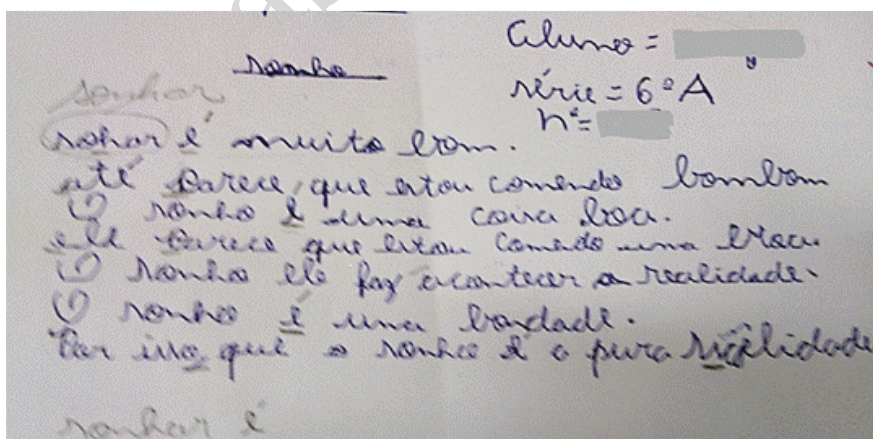 Aluno =
sonho
série = 6º A
nº =
sonhar
sohar é muito bom.
até parece, que estou comendo bombom
O sonho é uma coisa boa.
ele parece que estou comedo uma broa.
O sonho ele faz acontecer a realidade.
O sonho é uma bondade.
Por isso que o sonho é a pura realidade
sonhar é